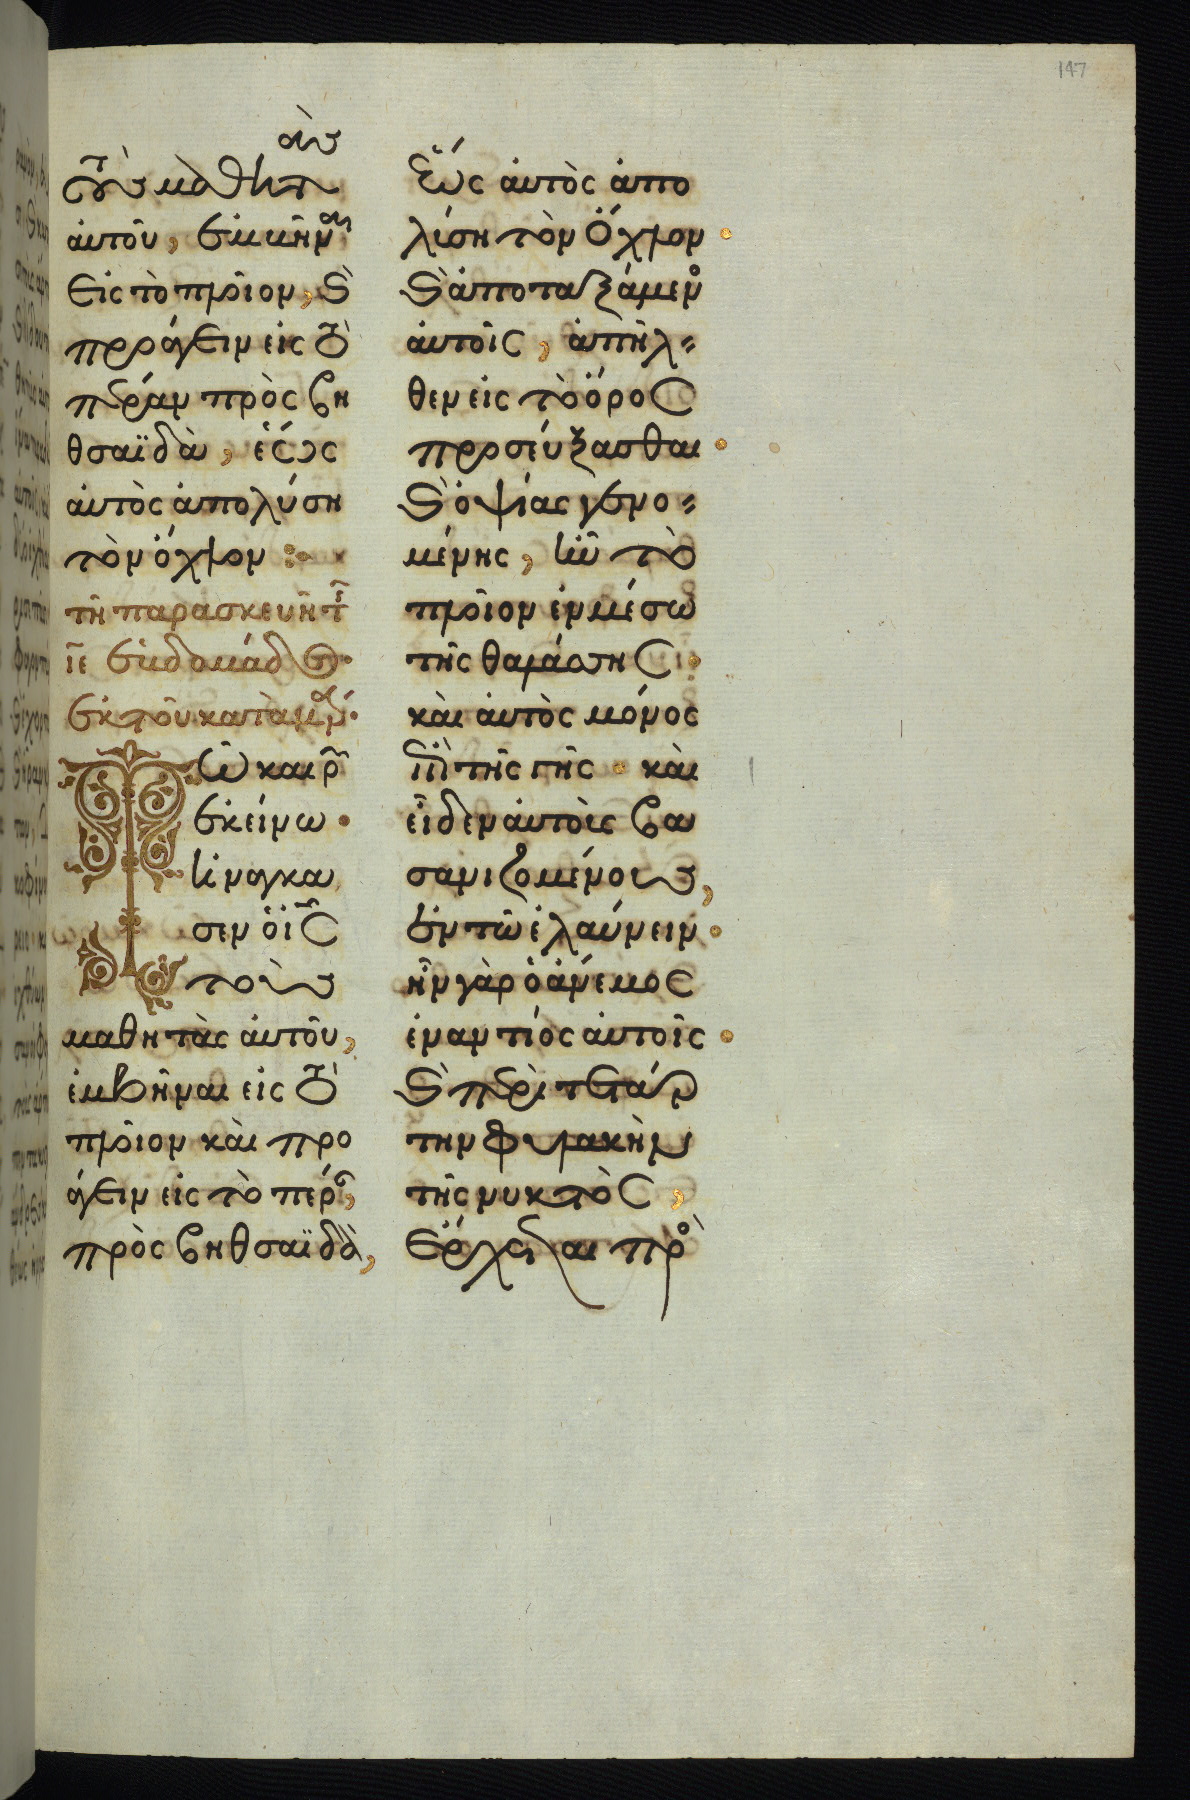 147
τοὺς μαθητὰς
αὐτοῦ, ἐμβῆναι
εἰς τὸ πλοῖον, καὶ
προάγειν εἰς τὸ
πέραν πρὸς βη
θσαϊδὰν, ἕως
αὐτὸς ἀπολύση
τὸν ὄχλον
τῆ παρασκευῆ τῆς
ιε ἑβδομάδος
ἐκ τοῦ κατὰ μάρκον
Τῶ καιρῶ
ἐκείνω
ἠνάγκα
σεν ὁ ἰς
τοὺς
μαθητὰς αὐτοῦ,
ἐμβῆναι εἰς τὸ
πλοῖον καὶ προ
άγειν εἰς τὸ πέραν,
πρὸς βηθσαϊδὰ,
ἕως αὐτὸς ἀπο
λύση τὸν ὄχλον
καὶ ἀποταξάμενος
αὐτοῖς, ἀπῆλ
θεν εἰς τὸ ὄρος
προσεύξασθαι
καὶ ὀψίας γενο
μένης, ἦν τὸ
πλοῖον ἐν μέσω
τῆς θαλάσσης
καὶ αὐτὸς μόνος
ἐπὶ τῆς γῆς καὶ
εἶδεν αὐτοὺς βα
σανιζομένους,
ἐν τῶ ἐλαύνειν
ἦν γὰρ ὁ ἄνεμος
ἐναντίος αὐτοῖς
καὶ περὶ τετάρ
την φυλακὴν
τῆς νυκτὸς,
ἔρχεται πρὸς